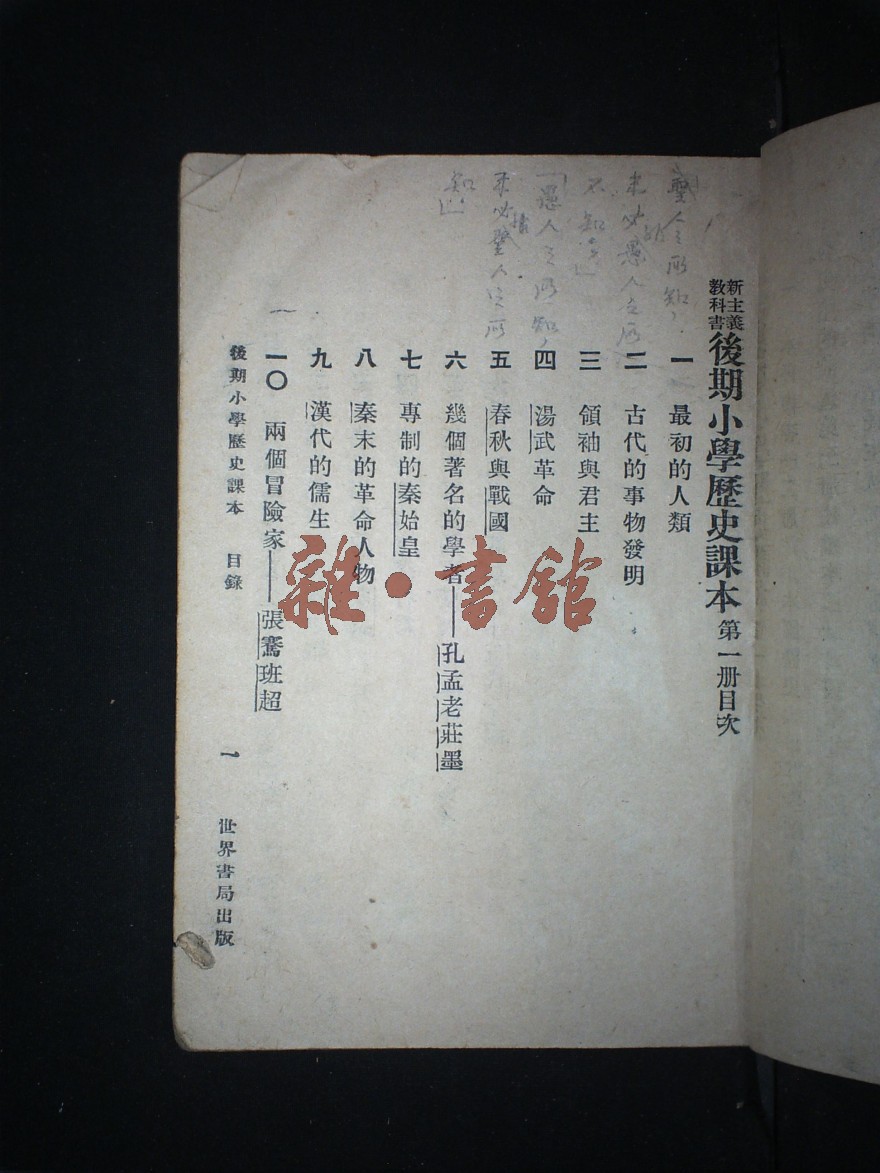 新主義教科書
後期小學歷史課本 第一册目次
聖人之所知，
未必愚人之所
不知。」
「愚人之所知，
未必聖人之所
知」
一 最初的人類
二 古代的事物發明
三 領袖與君主
四 湯武革命
五 春秋與戰國
六 幾個著名的學者——孔孟老莊墨
七 專制的秦始皇
八 秦末的革命人物
九 漢代的儒生
一〇 兩個冒險家——張騫班超
後期小學歷史課本 目錄 一 世界書局出版
雜·書館